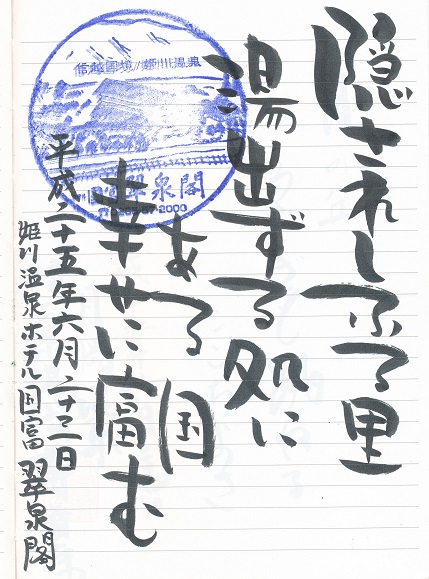 隠されしふる里
湯出ずる処に
ある国
幸せに富む
平成二十五年六月二十二日
姫川温泉ホテル国富 翠泉閣
信越国境の姫川温泉
国富 翠泉閣